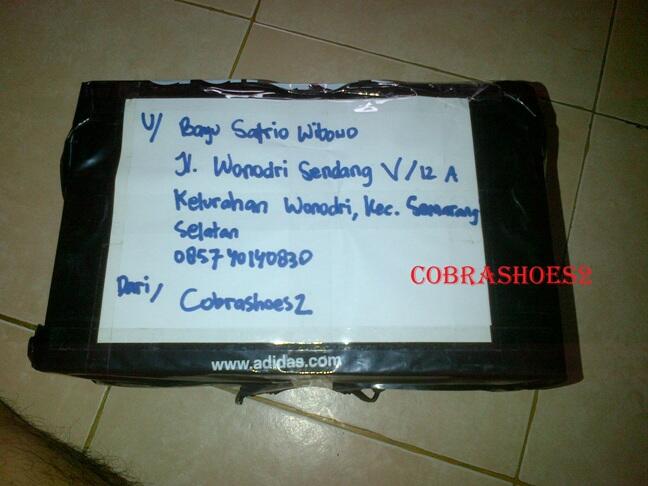 U/ Bagu Satrio Wibowo
Jl. Wonodri Sendang V/12 A
Kelurahan Wonodri, Kec. Semarang
Selatan
085740140830
Dari/ Cobrashoes2
COBRASHOES2
www.adidas.com